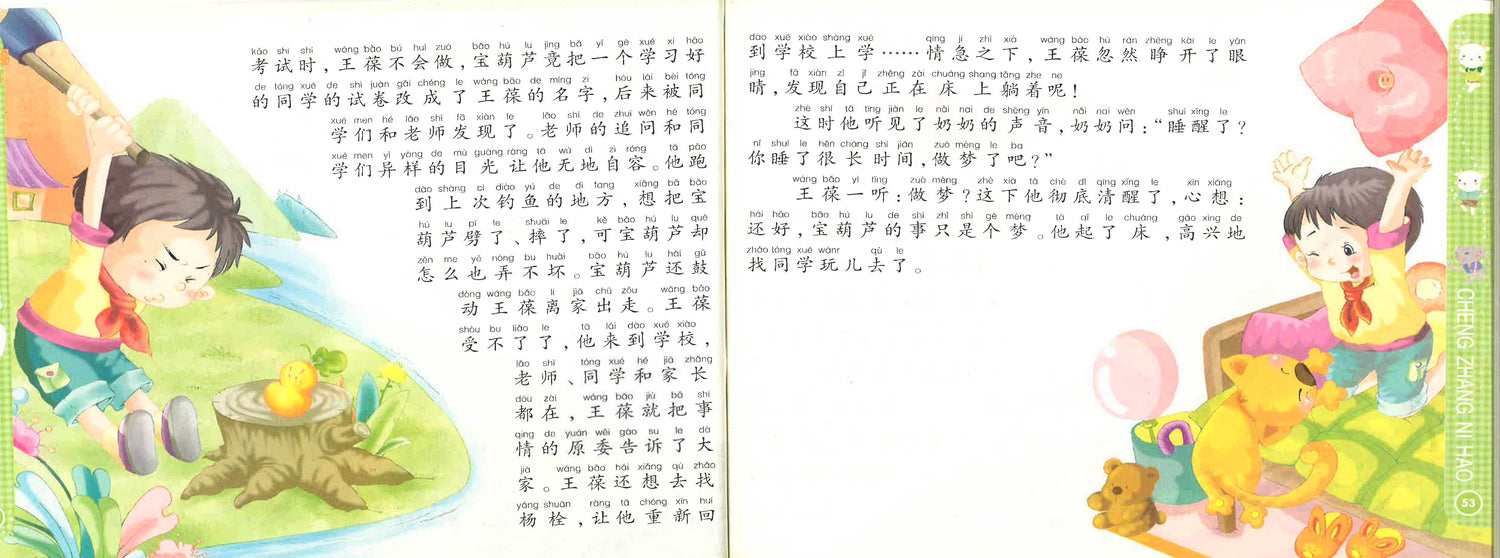 kǎo shì shí wáng bǎo bú huì zuò bǎo hú lu jìng bǎ yí gè xué xí hǎo
考试时，王葆不会做，宝葫芦竟把一个学习好
de tóng xué de shì juàn gǎi chéng le wáng bǎo de míng zi hòu lái bèi tóng
的同学的试卷改成了王葆的名字，后来被同
xué men hé lǎo shī fā xiàn le lǎo shī de zhuī wèn hé tóng
学们和老师发现了。老师的追问和同
xué men yì yàng de mù guāng ràng tā wú dì zì róng tā pǎo
学们异样的目光让他无地自容。他跑
dào shàng cì diào yú de dì fang xiǎng bǎ bǎo
到上次钓鱼的地方，想把宝
hú lu pī le shuāi le kě bǎo hú lu què
葫芦劈了、摔了，可宝葫芦却
zěn me yě nòng bu huài bǎo hú lu hái gǔ
怎么也弄不坏。宝葫芦还鼓
dòng wáng bǎo lí jiā chū zǒu wáng bǎo
动王葆离家出走。王葆
shòu bu liǎo le tā lái dào xué xiào
受不了了，他来到学校，
lǎo shī tóng xué hé jiā zhǎng
老师、同学和家长
dōu zài wáng bǎo jiù bǎ shì
都在，王葆就把事
qing de yuán wěi gào su le dà
情的原委告诉了大
jiā wáng bǎo hái xiǎng qù zhǎo
家。王葆还想去找
yáng shuān ràng tā chóng xīn huí
杨栓，让他重新回
dào xué xiào shàng xué qíng jí zhī xià wáng bǎo hū rán zhēng kāi le yǎn
到学校上学……情急之下，王葆忽然睁开了眼
jing fā xiàn zì jǐ zhèng zài chuáng shang tǎng zhe ne
睛，发现自己正在床上躺着呢！
zhè shí tā tīng jiàn le nǎi nai de shēng yīn nǎi nai wèn shuì xǐng le
这时他听见了奶奶的声音，奶奶问：“睡醒了？
nǐ shuì le hěn cháng shí jiān zuò mèng le ba
你睡了很长时间，做梦了吧？”
wáng bǎo yì tīng zuò mèng zhè xià tā chè dǐ qīng xǐng le xīn xiǎng
王葆一听：做梦？这下他彻底清醒了，心想：
hái hǎo bǎo hú lu de shì zhǐ shì gè mèng tā qǐ le chuáng gāo xìng de
还好，宝葫芦的事只是个梦。他起了床，高兴地
zhǎo tóng xué wánr qù le
找同学玩儿去了。
CHENG ZHANG NI HAO
53